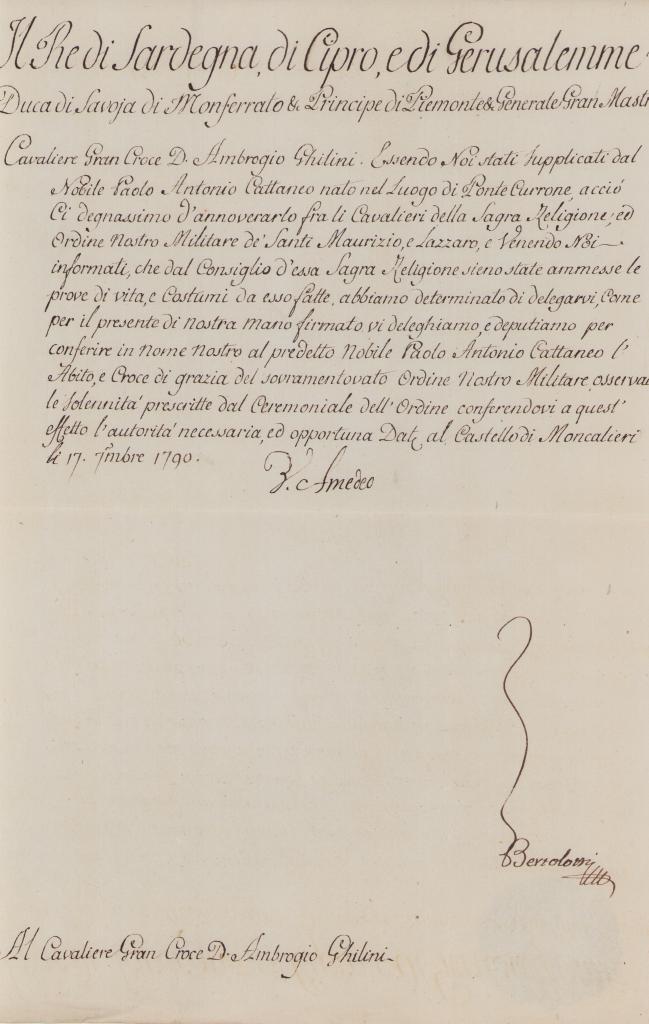 Il Re di Sardegna, di Cipro, e di Gerusalemme
Duca di Savoja di Monferrato &c Principe di Piemonte &c Generale Gran Mastr
Cavaliere Gran Croce D. Ambrogio Ghilini. Essendo Noi stati supplicati dal
Nobile Paolo Antonio Cattaneo nato nel Luogo di Ponte Currone, acciò
Ci degnassimo d'annoverarlo fra li Cavalieri della Sagra Religione, ed
Ordine Nostro Militare de' Santi Maurizio, e Lazzaro, e Venendo Noi
informati, che dal Consiglio d'essa Sagra Religione sieno state ammesse le
prove di vita, e Costumi da esso fatte, abbiamo determinato di delegarvi, Come
per il presente di nostra mano firmato vi deleghiamo, e deputiamo per
conferire in nome nostro al predetto Nobile Paolo Antonio Cattaneo l'
Abito, e Croce di grazia del sovramentovato Ordine Nostro Militare, osserva
le solennità prescritte dal Ceremoniale dell'Ordine conferendovi a quest'
effetto l'autorità necessaria, ed opportuna Dat. al Castello di Moncalieri
li 17. 7mbre 1790.
V. Amedeo
Bertolotti
Al Cavaliere Gran Croce D. Ambrogio Ghilini